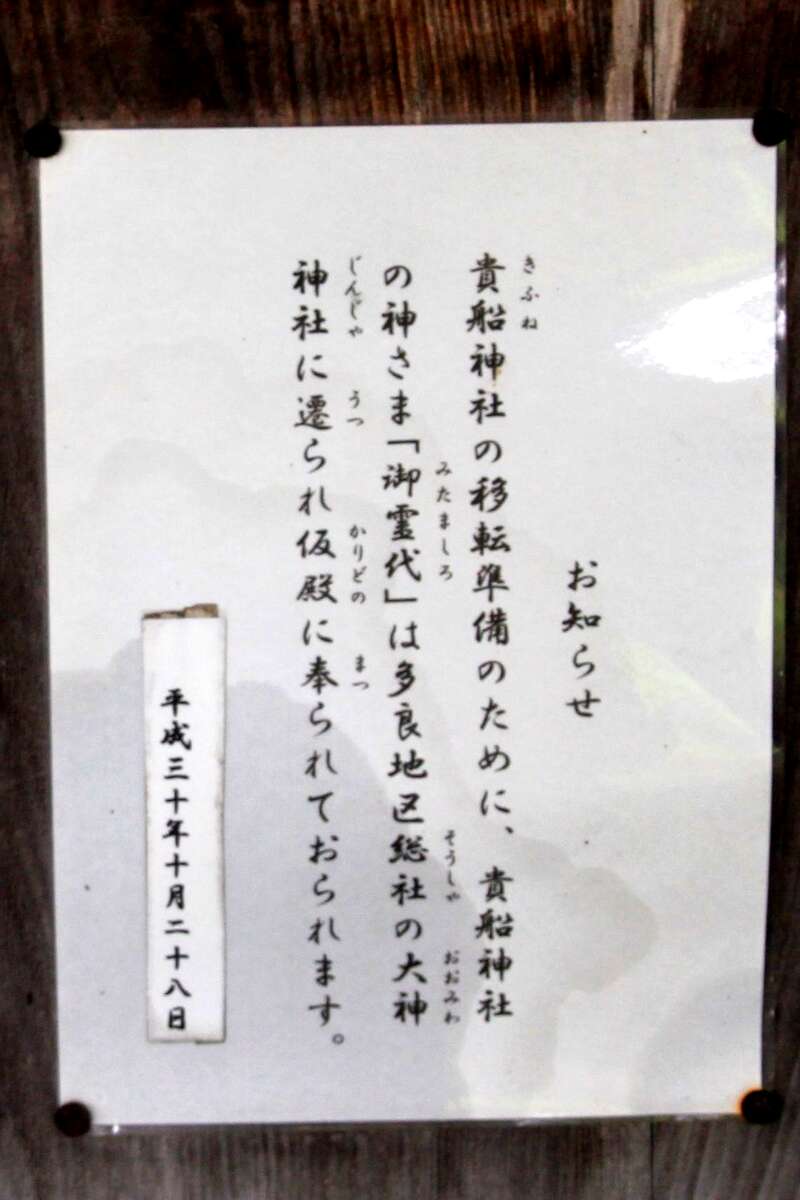 お知らせ
貴船神社の移転準備のために、貴船神社
きふね
の神さま「御霊代」は多良地区総社の大神
みたましろ
そうしゃ
おおみわ
神社に遷られ仮殿に奉られております。
じんじゃ
うつ
かりどの
まつ
平成三十年十月二十八日